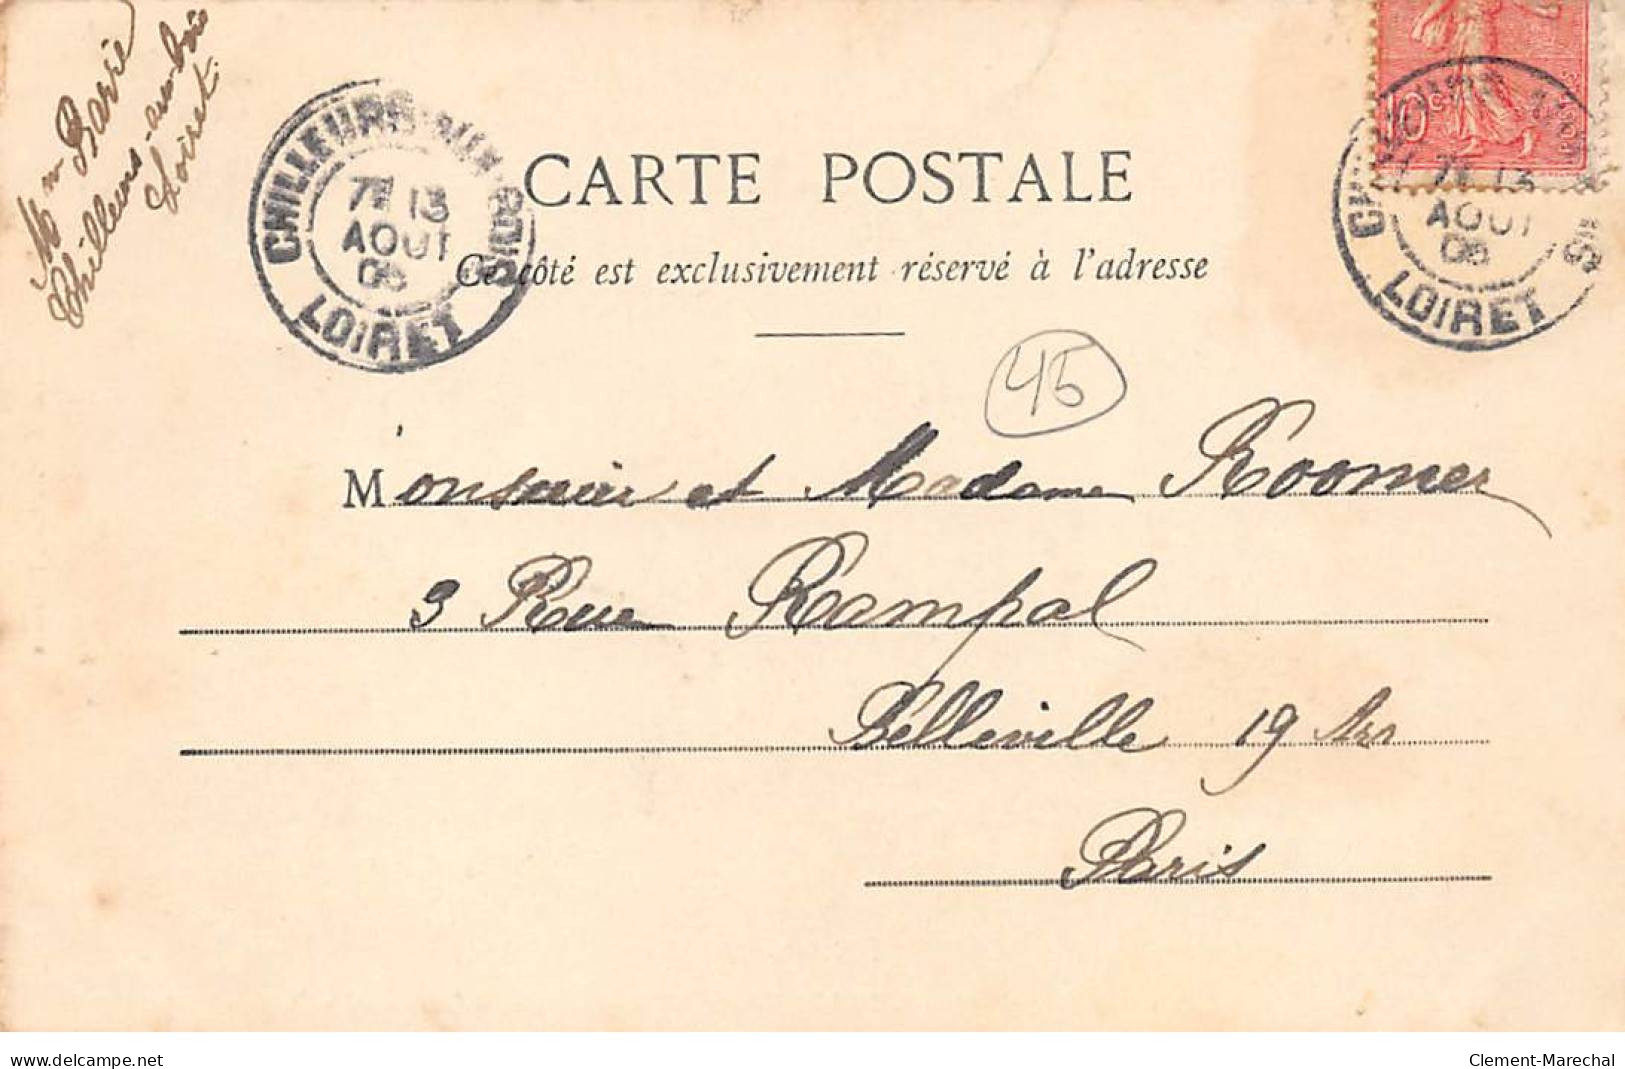 Mme Barré
Chilleurs-aux-bois
Loiret.
CHILLEURS-AUX-BOIS
7E 13
AOUT
LOIRET
CARTE POSTALE
Ce côté est exclusivement réservé à l'adresse
10c
7E 13
AOUT
LOIRET
45
Monsieur et Madame Roomer
3 Rue Rampal
Belleville 19 Arr
Paris
www.delcampe.net
Clement-Marechal